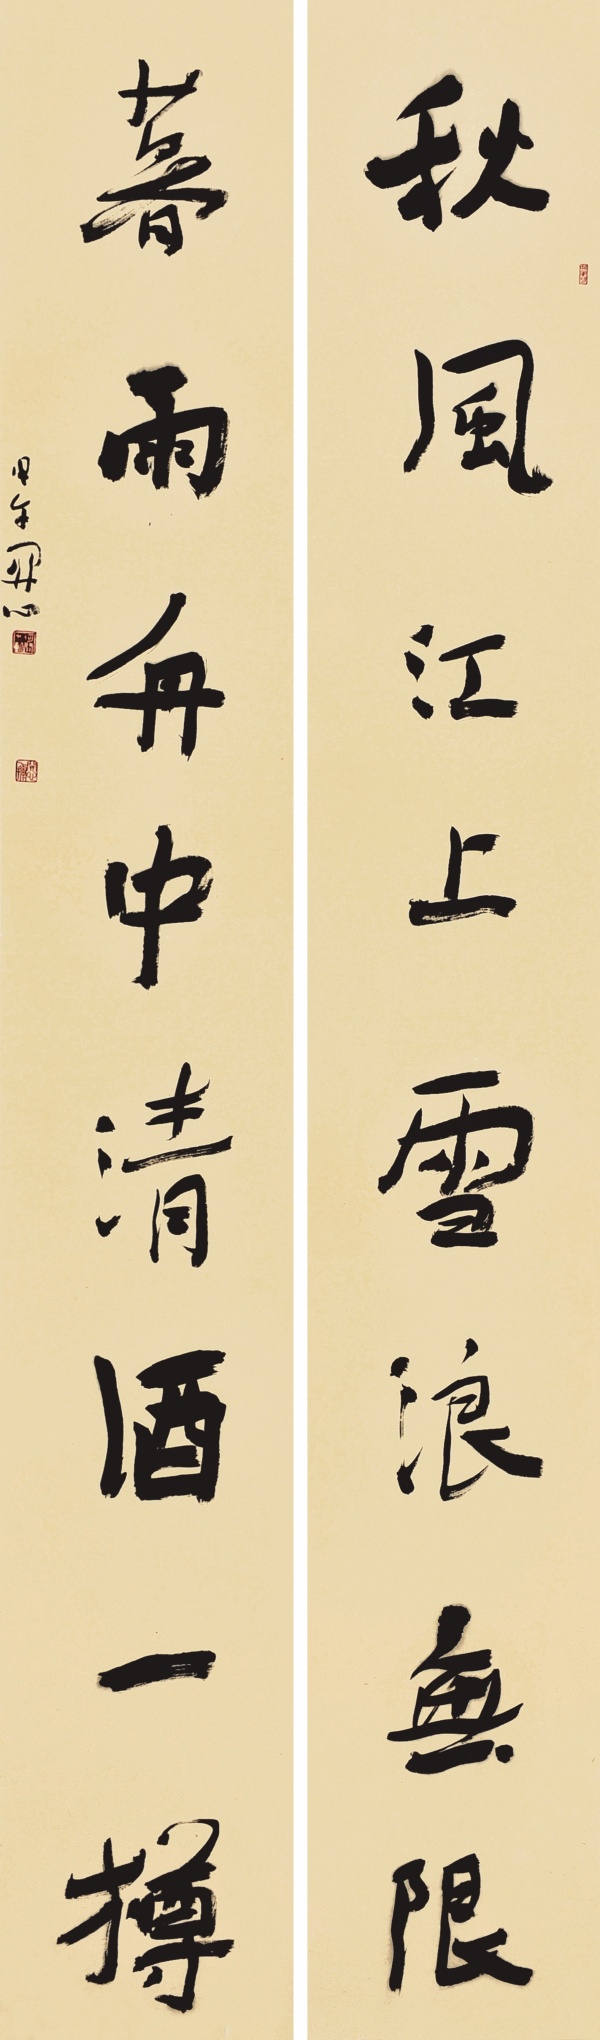 秋風江上雪浪無限
暮雨舟中清酒一樽
甲午開心